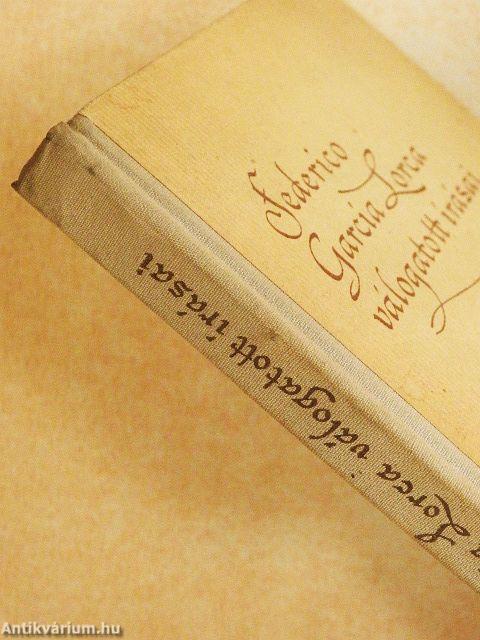 Federico
García Lorca
válogatott írásai
Lorca válogatott írásai
Antikvárium.hu